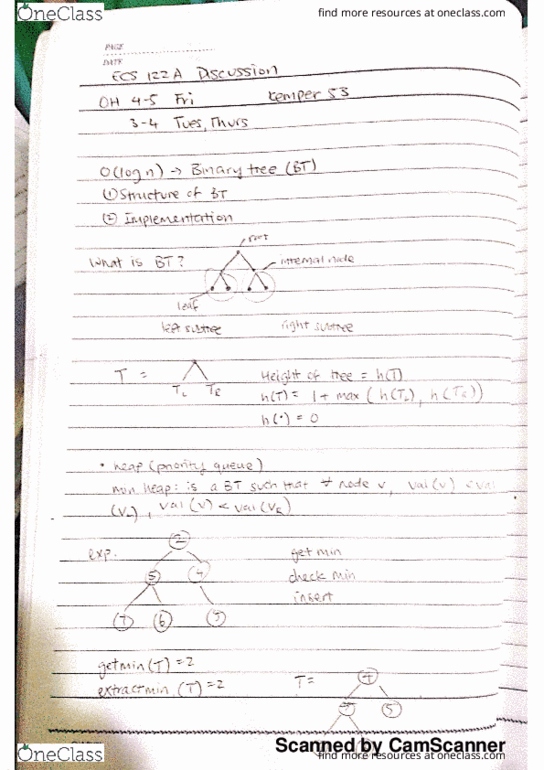 OneClass
find more resources at oneclass.com
PAGE
DATE
ECS 122A Discussion
OH 4-5 Fri Kemper 53
3-4 Tues, Thurs
O(log n) → Binary tree (BT)
① Structure of BT
② Implementation
root
What is BT? internal node
leaf
left subtree right subtree
T = Height of tree = h(T)
T_L T_R h(T) = 1 + max (h(T_L), h(T_R))
h(•) = 0
• heap (priority queue)
min heap: is a BT such that ∀ node v, val(v) < val
(v_L), val(v) < val(v_R)
2
exp. get min
5 4 check min
insert
7 6 9
getmin(T) = 2
extractmin(T) = 2 T = 4
5
Scanned by CamScanner
OneClass
find more resources at oneclass.com